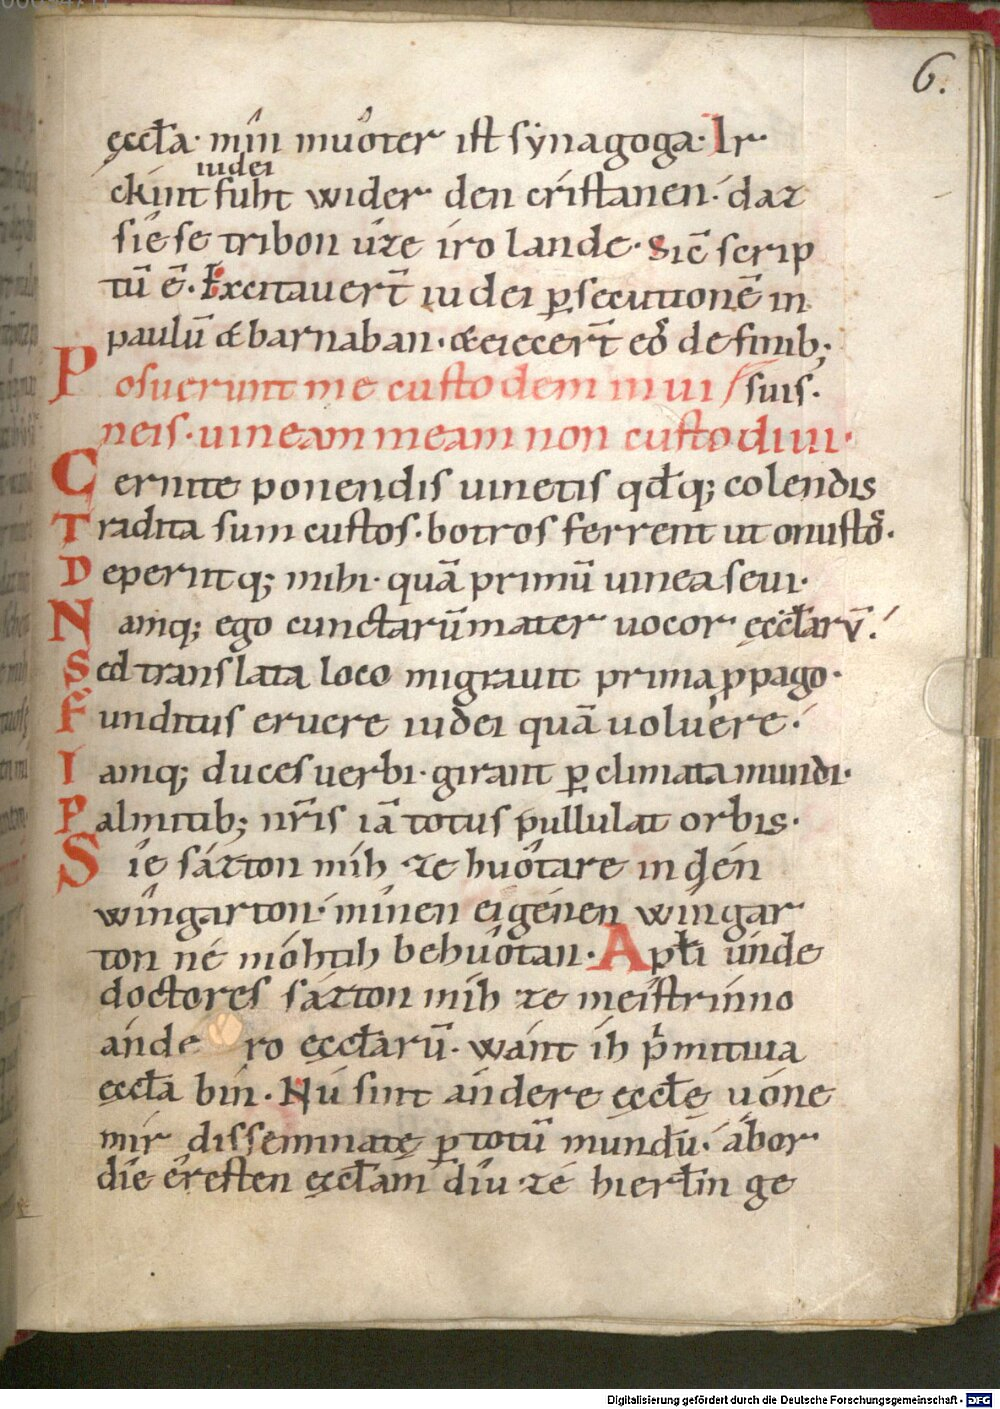 6.
ęccła. mîn muͦter ist sýnagoga. Ir
iudei
ckint fuht wider den cristanen. daz
siese tribon ûze iro lande. Sic̄ scrip
tū ē. Excitauer̄t iudei p̱secutionē in
paulū & barnaban. & eiecer̄t eoˢ de finib;
Posuerunt me custodem in ui / suis.
neis. uineam meam non custodiui.
Cernite ponendis uinetis qd̄q; colendis
Tradita sum custos. botros ferrent ut onustoˢ.
Deperiitq; mihi. quā primū uinea seui.
Namq; ego cunctarū mater uocor ęccłarū.
Sed translata loco migrauit prima p pago.
Funditus eruere iudei quā uoluere.
Iamq; duces uerbi. girant p̱ climata mundi.
Palmitib; nr̄is iā totus pullulat orbis.
Sie sázton mih ze huͦtare in dén
wîngarton. mînen eigénen wîngar
ton né móhtih behuͦtan. Apłi únde
doctores sázton mih ze meistrinno
ánde ro ęccłarū. want ih p̍mitiua
ęccła bin. Nú sint ándere ęccłę uóne
mir disseminatę p̱ totū mundū. ábor
die êresten ęccłam diu ze hierłm ge
Digitalisierung gefördert durch die Deutsche Forschungsgemeinschaft - DFG